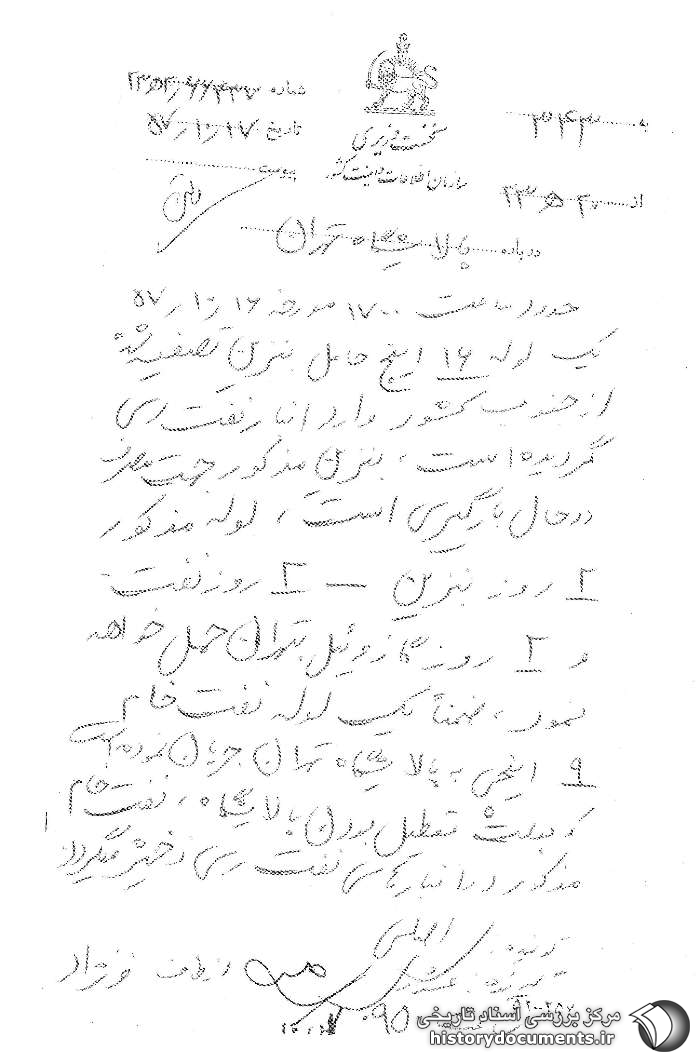 نخست وزیری
سازمان اطلاعات و امنیت کشور
شماره
تاریخ ۵۷/۱۰/۱۷
پیوست
به
از ۲۰ ه ۲۳
درباره پالایشگاه تهران
حدود ساعت ۱۷۰۰ مورخه ۵۷/۱۰/۱۶
یک لوله ۱۶ اینچ حامل بنزین تصفیه شده
از جنوب کشور وارد انبار نفت ری
گردیده است، بنزین مذکور جهت مصرف
در حال بارگیری است، لوله مذکور
۲ روز بنزین — ۲ روز نفت
و ۲ روز گازوئیل بتهران حمل خواهد
نمود، ضمناً یک لوله نفت خام
۹ اینچی به پالایشگاه تهران جریان نموده است
که بعلت تعطیل بودن پالایشگاه، نفت خام
مذکور در انبارهای نفت ری ذخیره میگردد
گوینده: اصلی
گیرنده:
مرکز بررسی اسناد تاریخی
historydocuments.ir